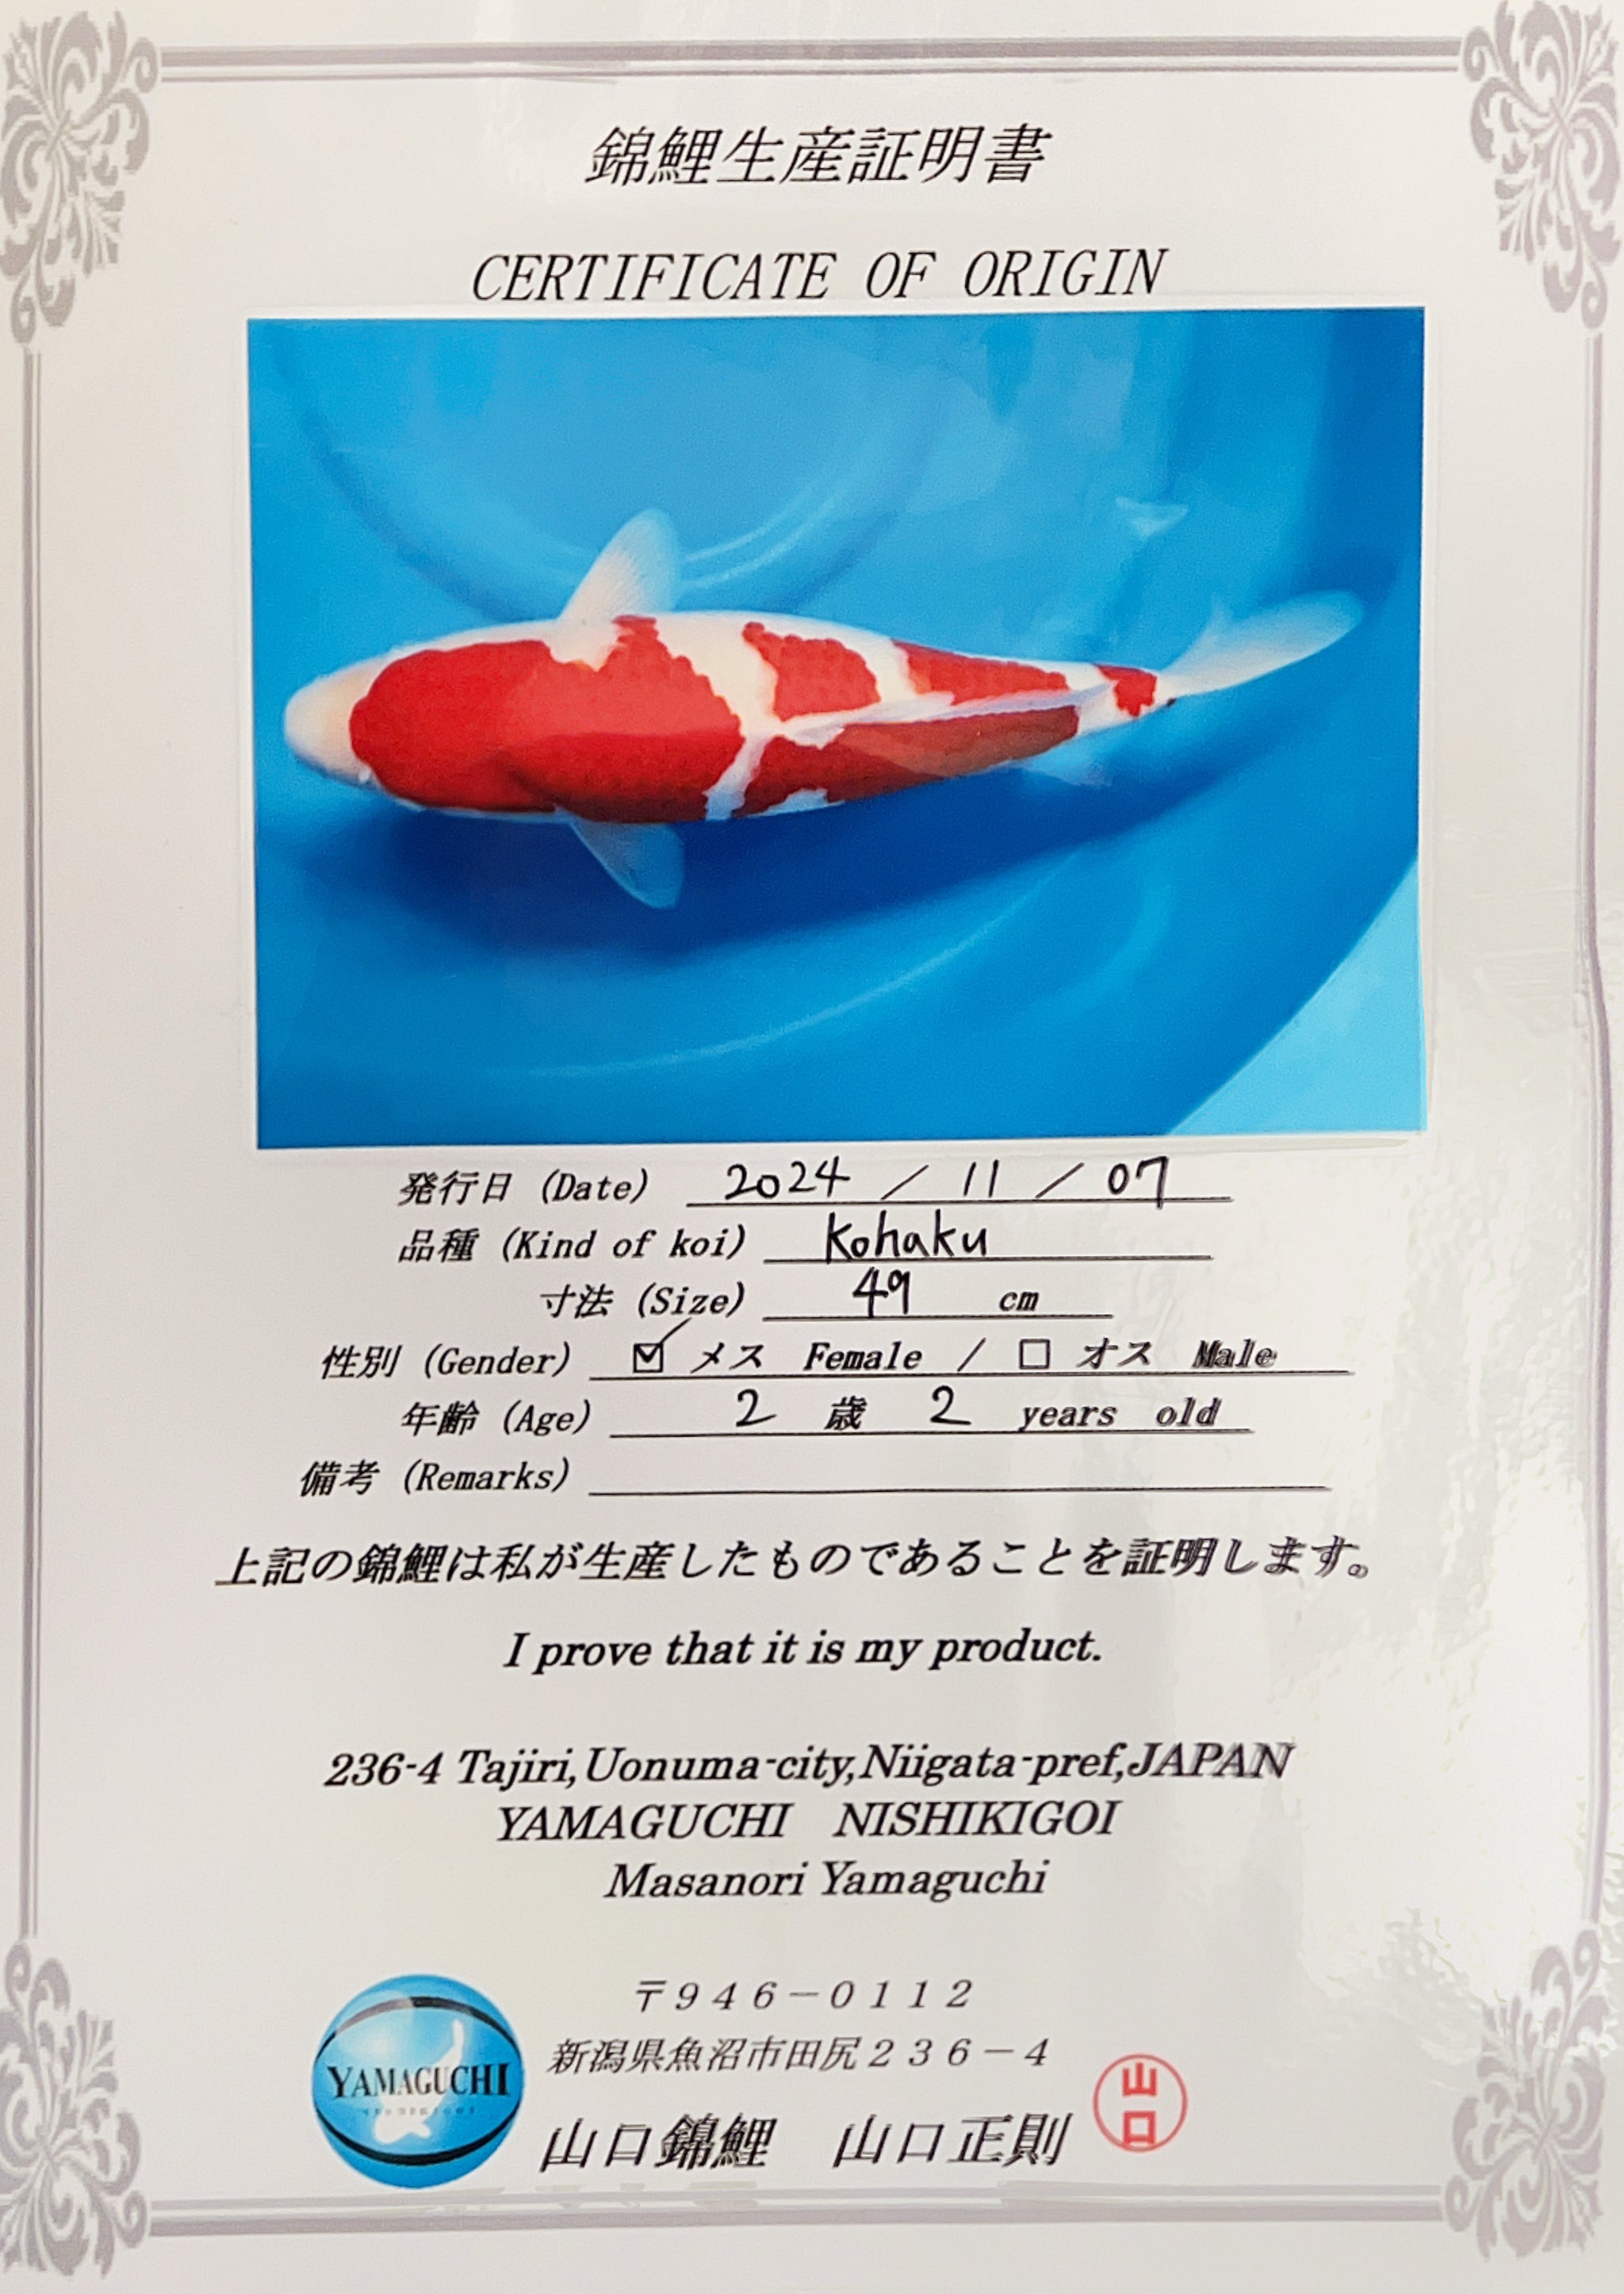 錦鯉生産証明書
CERTIFICATE OF ORIGIN
発行日 (Date) 2024 / 11 / 07
品種 (Kind of koi) Kohaku
寸法 (Size) 49 cm
性別 (Gender) ☑ メス Female / □ オス Male
年齢 (Age) 2 歳 2 years old
備考 (Remarks)
上記の錦鯉は私が生産したものであることを証明します。
I prove that it is my product.
236-4 Tajiri,Uonuma-city,Niigata-pref,JAPAN
YAMAGUCHI NISHIKIGOI
Masanori Yamaguchi
〒946－0112
新潟県魚沼市田尻236－4
山口錦鯉 山口正則
YAMAGUCHI
山口